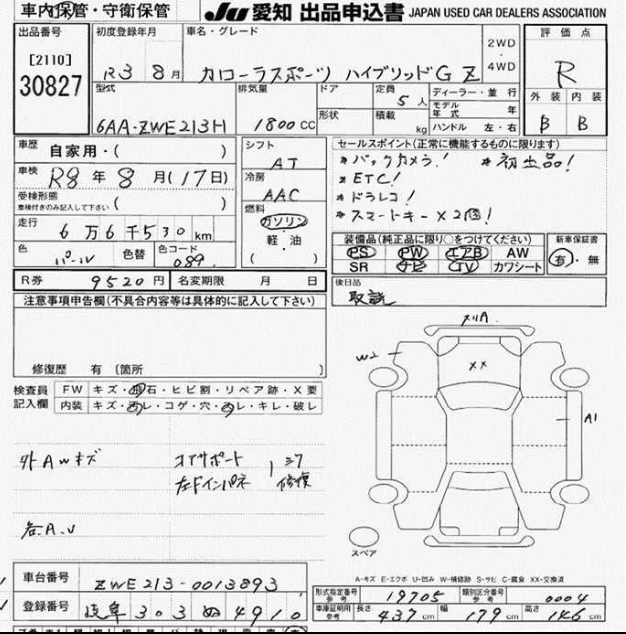 車内保管・守衛保管
JU 愛知 出品申込書 JAPAN USED CAR DEALERS ASSOCIATION
出品番号
[2110]
30827
初度登録年月
R3 8月
車名・グレード
カローラスポーツ ハイブリッドG Z
2WD
・
4WD
評価点
R
外装 内装
B B
型式
6AA-ZWE213H
排気量
1800CC
ドア
形状
定員
5人
積載
kg
ディーラー・並行
モデル年式 年
ハンドル 左・右
車歴 自家用・( )
車検 R8年8月(17日)
受検形態
車検付きのみ記入して下さい ( )
走行 6万6千530km
色 パール 色替 色コード 089
シフト
AT
冷房
AAC
燃料
ガソリン
・
軽・油
( )
セールスポイント(正常に機能するものに限ります)
*バックカメラ! *初出品!
*ETC!
*ドラレコ!
*スマートキー×2個!
装備品(純正品に限り○をつけてください)
PS PW エアB AW
SR ナビ TV カワシート
新車保証書
有・無
R券 9520円 名変期限 月 日
後日品
取説
注意事項申告欄(不具合内容等は具体的に記入して下さい)
修復歴 有(箇所 )
検査員記入欄
FW キズ・飛石・ヒビ割・リペア跡・X要
内装 キズ・汚レ・コゲ・穴・汚レ・キレ・破レ
メリA
W2
××
A1
外AWキズ
コアサポート
左Fインパネ
修復
各A.U
スペア
A-キズ E-エクボ U-凹み W-補修跡 S-サビ C-腐食 XX-交換済
車台番号 ZWE213-0013893
登録番号 岐阜 303 ぬ 4910
形式指定番号 参考 19705 類別区分番号 参考 0004
車庫証明用 参考 長さ 437cm 幅 179cm 高さ 146cm